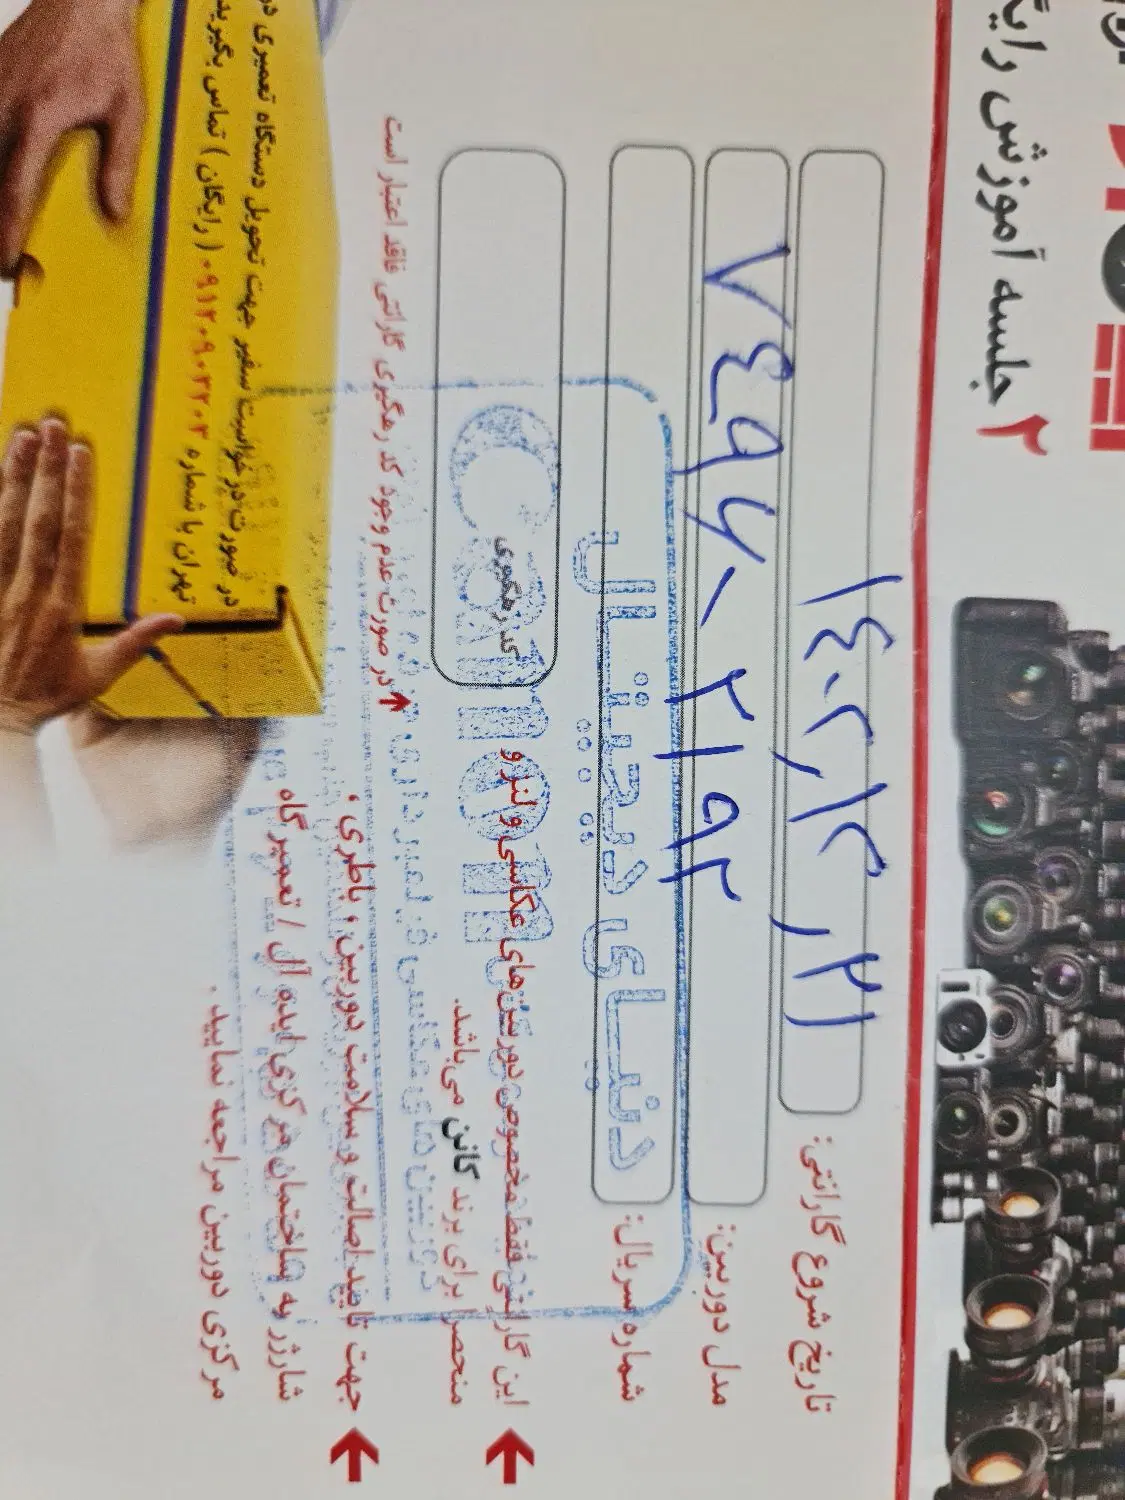 ۲ جلسه آموزش رایگ
تاریخ شروع گارانتی: ۱٤۰۲٫۱۲٫۲۱
مدل دوربین: ۷٤۹۶۰۲۱۹۲
شماره سریال:
دنیای دیجیتال
Canon
کد رهگیری
این گارانتی فقط مخصوص دوربین‌های عکاسی و لنز و
منحصرا برای برند کانن می‌باشد.
در صورت عدم وجود کد رهگیری گارانتی فاقد اعتبار است
جهت تایید اصالت و سلامت دوربین ، باطری ،
شارژر به ساختمان مرکزی ایده آل / تعمیرگاه
مرکزی دوربین مراجعه نمایید.
در صورت درخواست سفیر جهت تحویل دستگاه تعمیری در
تهران با شماره ۰۹۱۲۰۹۰۳۲۰۳ ( رایگان ) تماس بگیرید